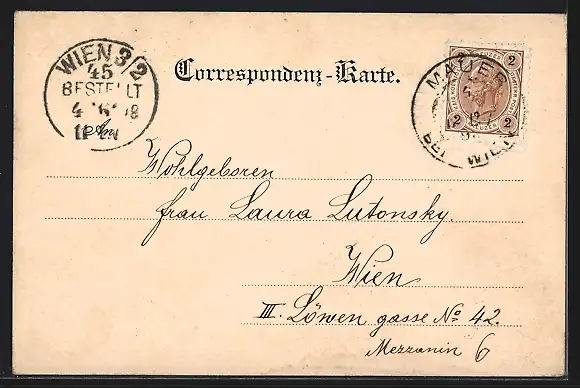 WIEN 3/2
45
BESTELLT
Correspondenz-Karte.
2 2
2 2
MAUER
BEI WIEN
An
Wohlgeboren
frau Laura Lutonsky.
Wien
III. Löwen gasse No 42.
Mezzanin 6